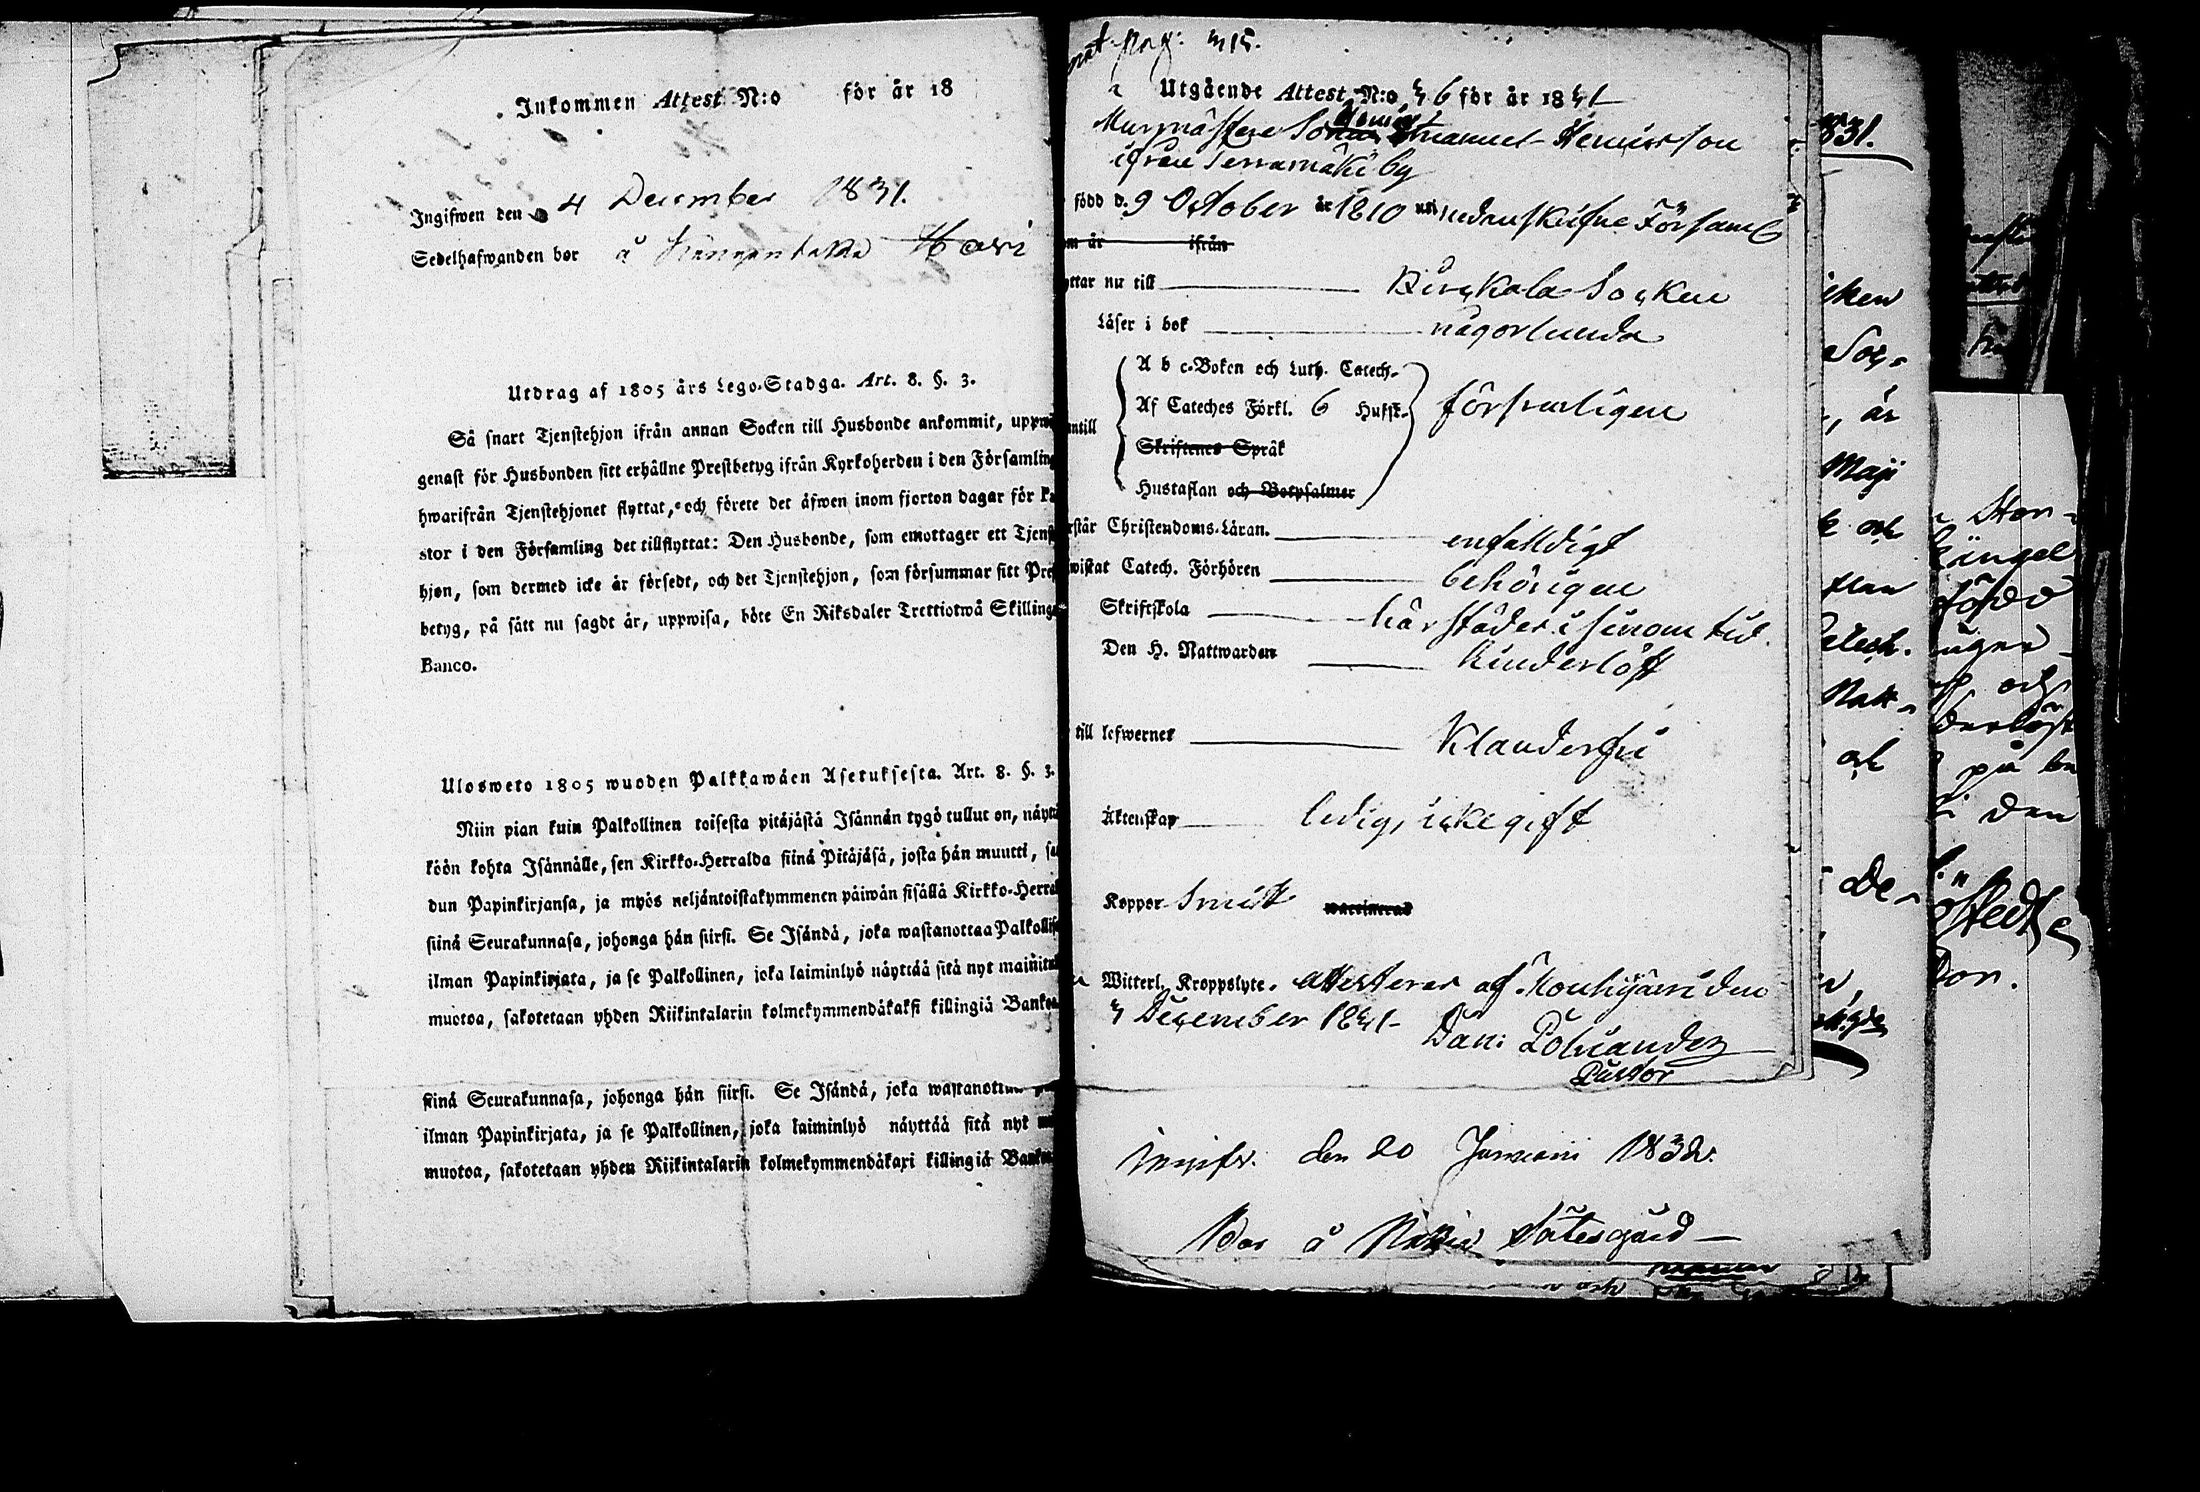 Inkommen Attest N:o för år 18
Ingifwen den 4 December 1831.
Sedelhafwanden bor å Hari
Utdrag af 1805 års Lego-Stadga. Art. 8. §. 3.
Så snart Tjenstehjon ifrån annan Socken till Husbonde ankommit, uppwi
genast för Husbonden sitt erhållne Prestbetyg ifrån Kyrkoherden i den Församling
hwarifrån Tjenstehjonet flyttat, och förete det äfwen inom fjorton dagar för Pa
stor i den Församling det tillflyttat: Den Husbonde, som emottager ett Tjenst
hjon, som dermed icke är försedt, och det Tjenstehjon, som försummar sitt Prest
betyg, på sätt nu sagdt är, uppwisa, böte En Riksdaler Trettiotwå Skillinga
Banco.
Ulosweto 1805 wuoden Palkkawäen Asetuksesta. Art. 8. §. 3.
Niin pian kuin Palkollinen toisesta pitäjästä Isännän tygö tullut on, näyttä
köön kohta Isännälle, sen Kirkko-Herralda siinä Pitäjäsä, josta hän muutti, sa
dun Papinkirjansa, ja myös neljäntoistakymmenen päiwän sisällä Kirkko-Herral
siinä Seurakunnasa, johonga hän siirsi. Se Isändä, joka wastanottaa Palkollise
ilman Papinkirjata, ja se Palkollinen, joka laiminlyö näyttää sitä nyt mainitul
muotoa, sakotetaan yhden Riikintalarin kolmekymmendäkaksi killingiä Bankos
siinä Seurakunnasa, johonga hän siirsi. Se Isändä, joka wastanottaa
ilman Papinkirjata, ja se Palkollinen, joka laiminlyö näyttää sitä nyt
muotoa, sakotetaan yhden Riikintalarin kolmekymmendäkaxi killingiä Banko
pag: 315.
Utgående Attest N:o 36 för år 1831
Murmästare Sonen Emanuel Henriksson
ifrån Terramäki by
född d. 9 October år 1810 uti nedanskrifne Församl
om år ifrån
yttar nu till Birckala Socken
Läser i bok någorlunda
A b c-Boken och Luth. Catech.
Af Cateches Förkl. 6 Hufst.
antill försvarligen
Skriftenes Språk
Hustaflan och Botpsalmer
rstår Christendoms-Läran. enfaldigt
wistat Catech. Förhören behörigen
Skriftskola härstädes i sinom tid.
Den H. Nattwarden hinderlöst
till lefwernet Klanderfri
Äktenskap ledig, icke gift
Koppor Smitt waccinerad
Witterl. Kroppslyte. attesterar af Mouhijärvi den
3 December 1831- Dan: Polviander
Pastor
ingifv. den 20 Januarii 1832.
Bor å Säterigård
831.
Maji
och
Catech.
Natt-
och
De-
född
och
på
den